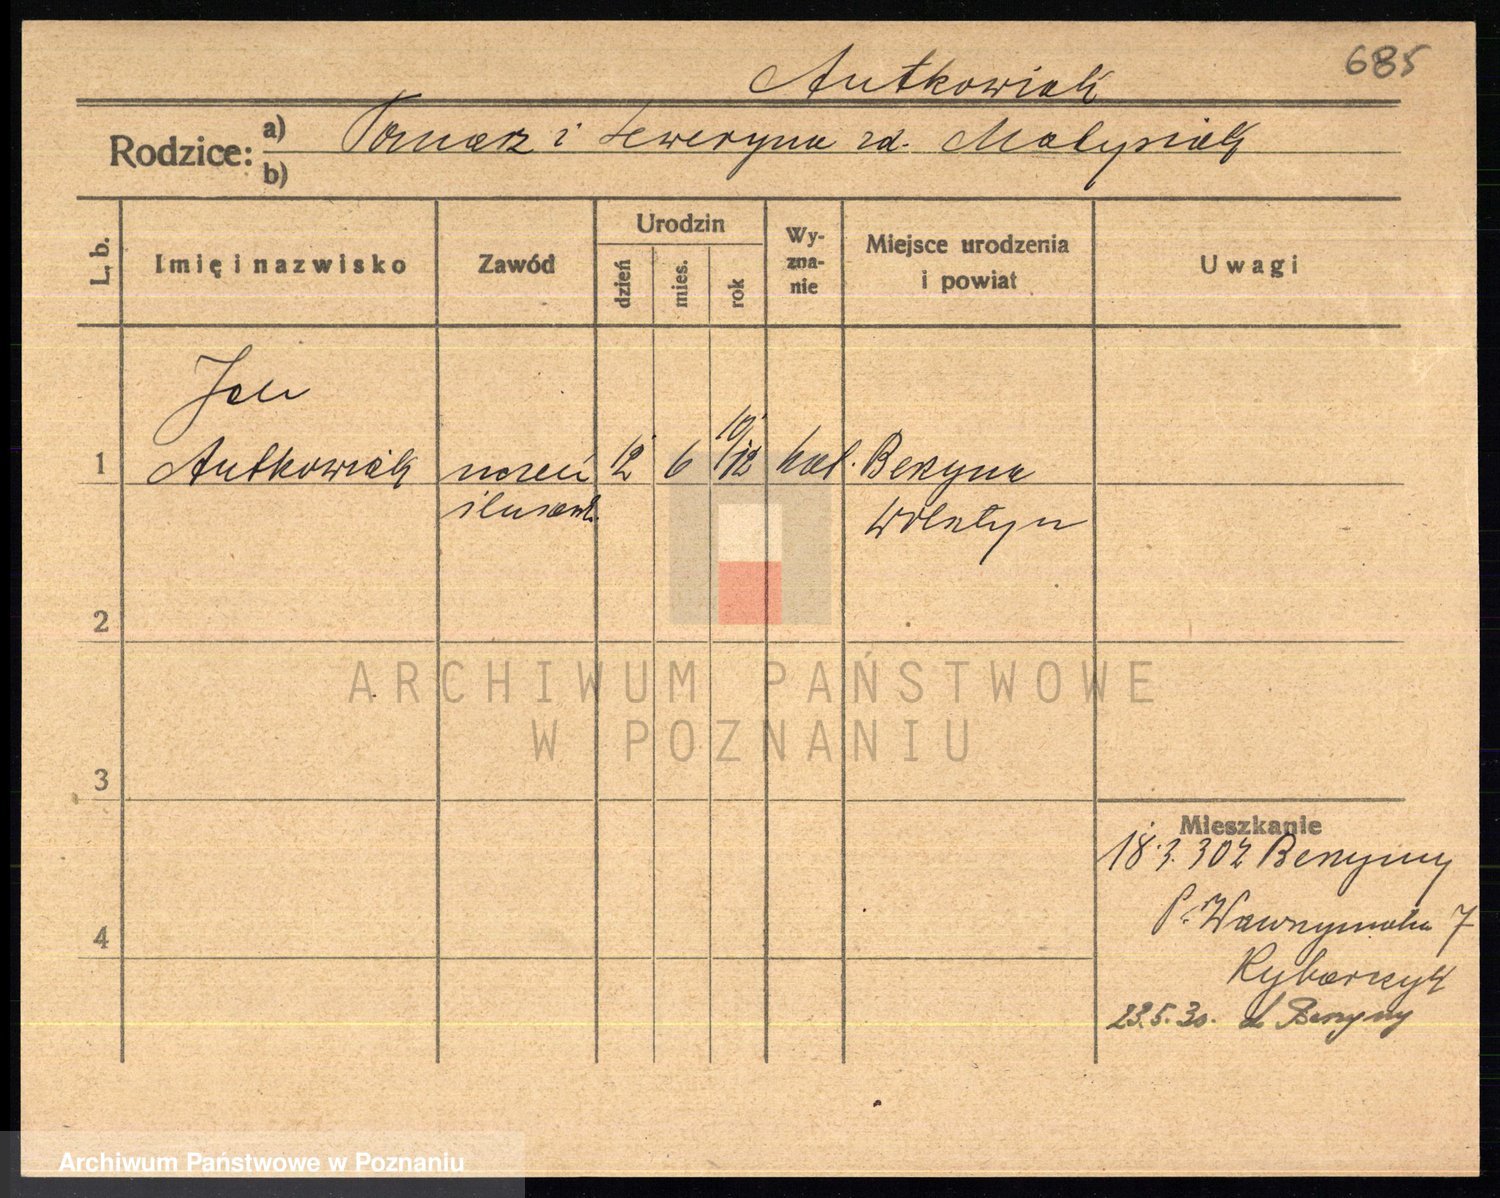 685
Antkowiak
Rodzice: a) Tomasz i Seweryna zd. Małysiak
b)
L. b. Imię i nazwisko Zawód Urodzin dzień mies. rok Wyznanie Miejsce urodzenia i powiat Uwagi
Jan
1 Antkowiak uczeń 12 6 10/12 kat. Berzyna
ślusarsk. Wolsztyn
2
ARCHIWUM PAŃSTWOWE
W POZNANIU
3
Mieszkanie
18.3. 30 z Berzyny
4 Wawrzyniaka 7
Rybarczyk
23.5.30. do Berzyny
Archiwum Państwowe w Poznaniu